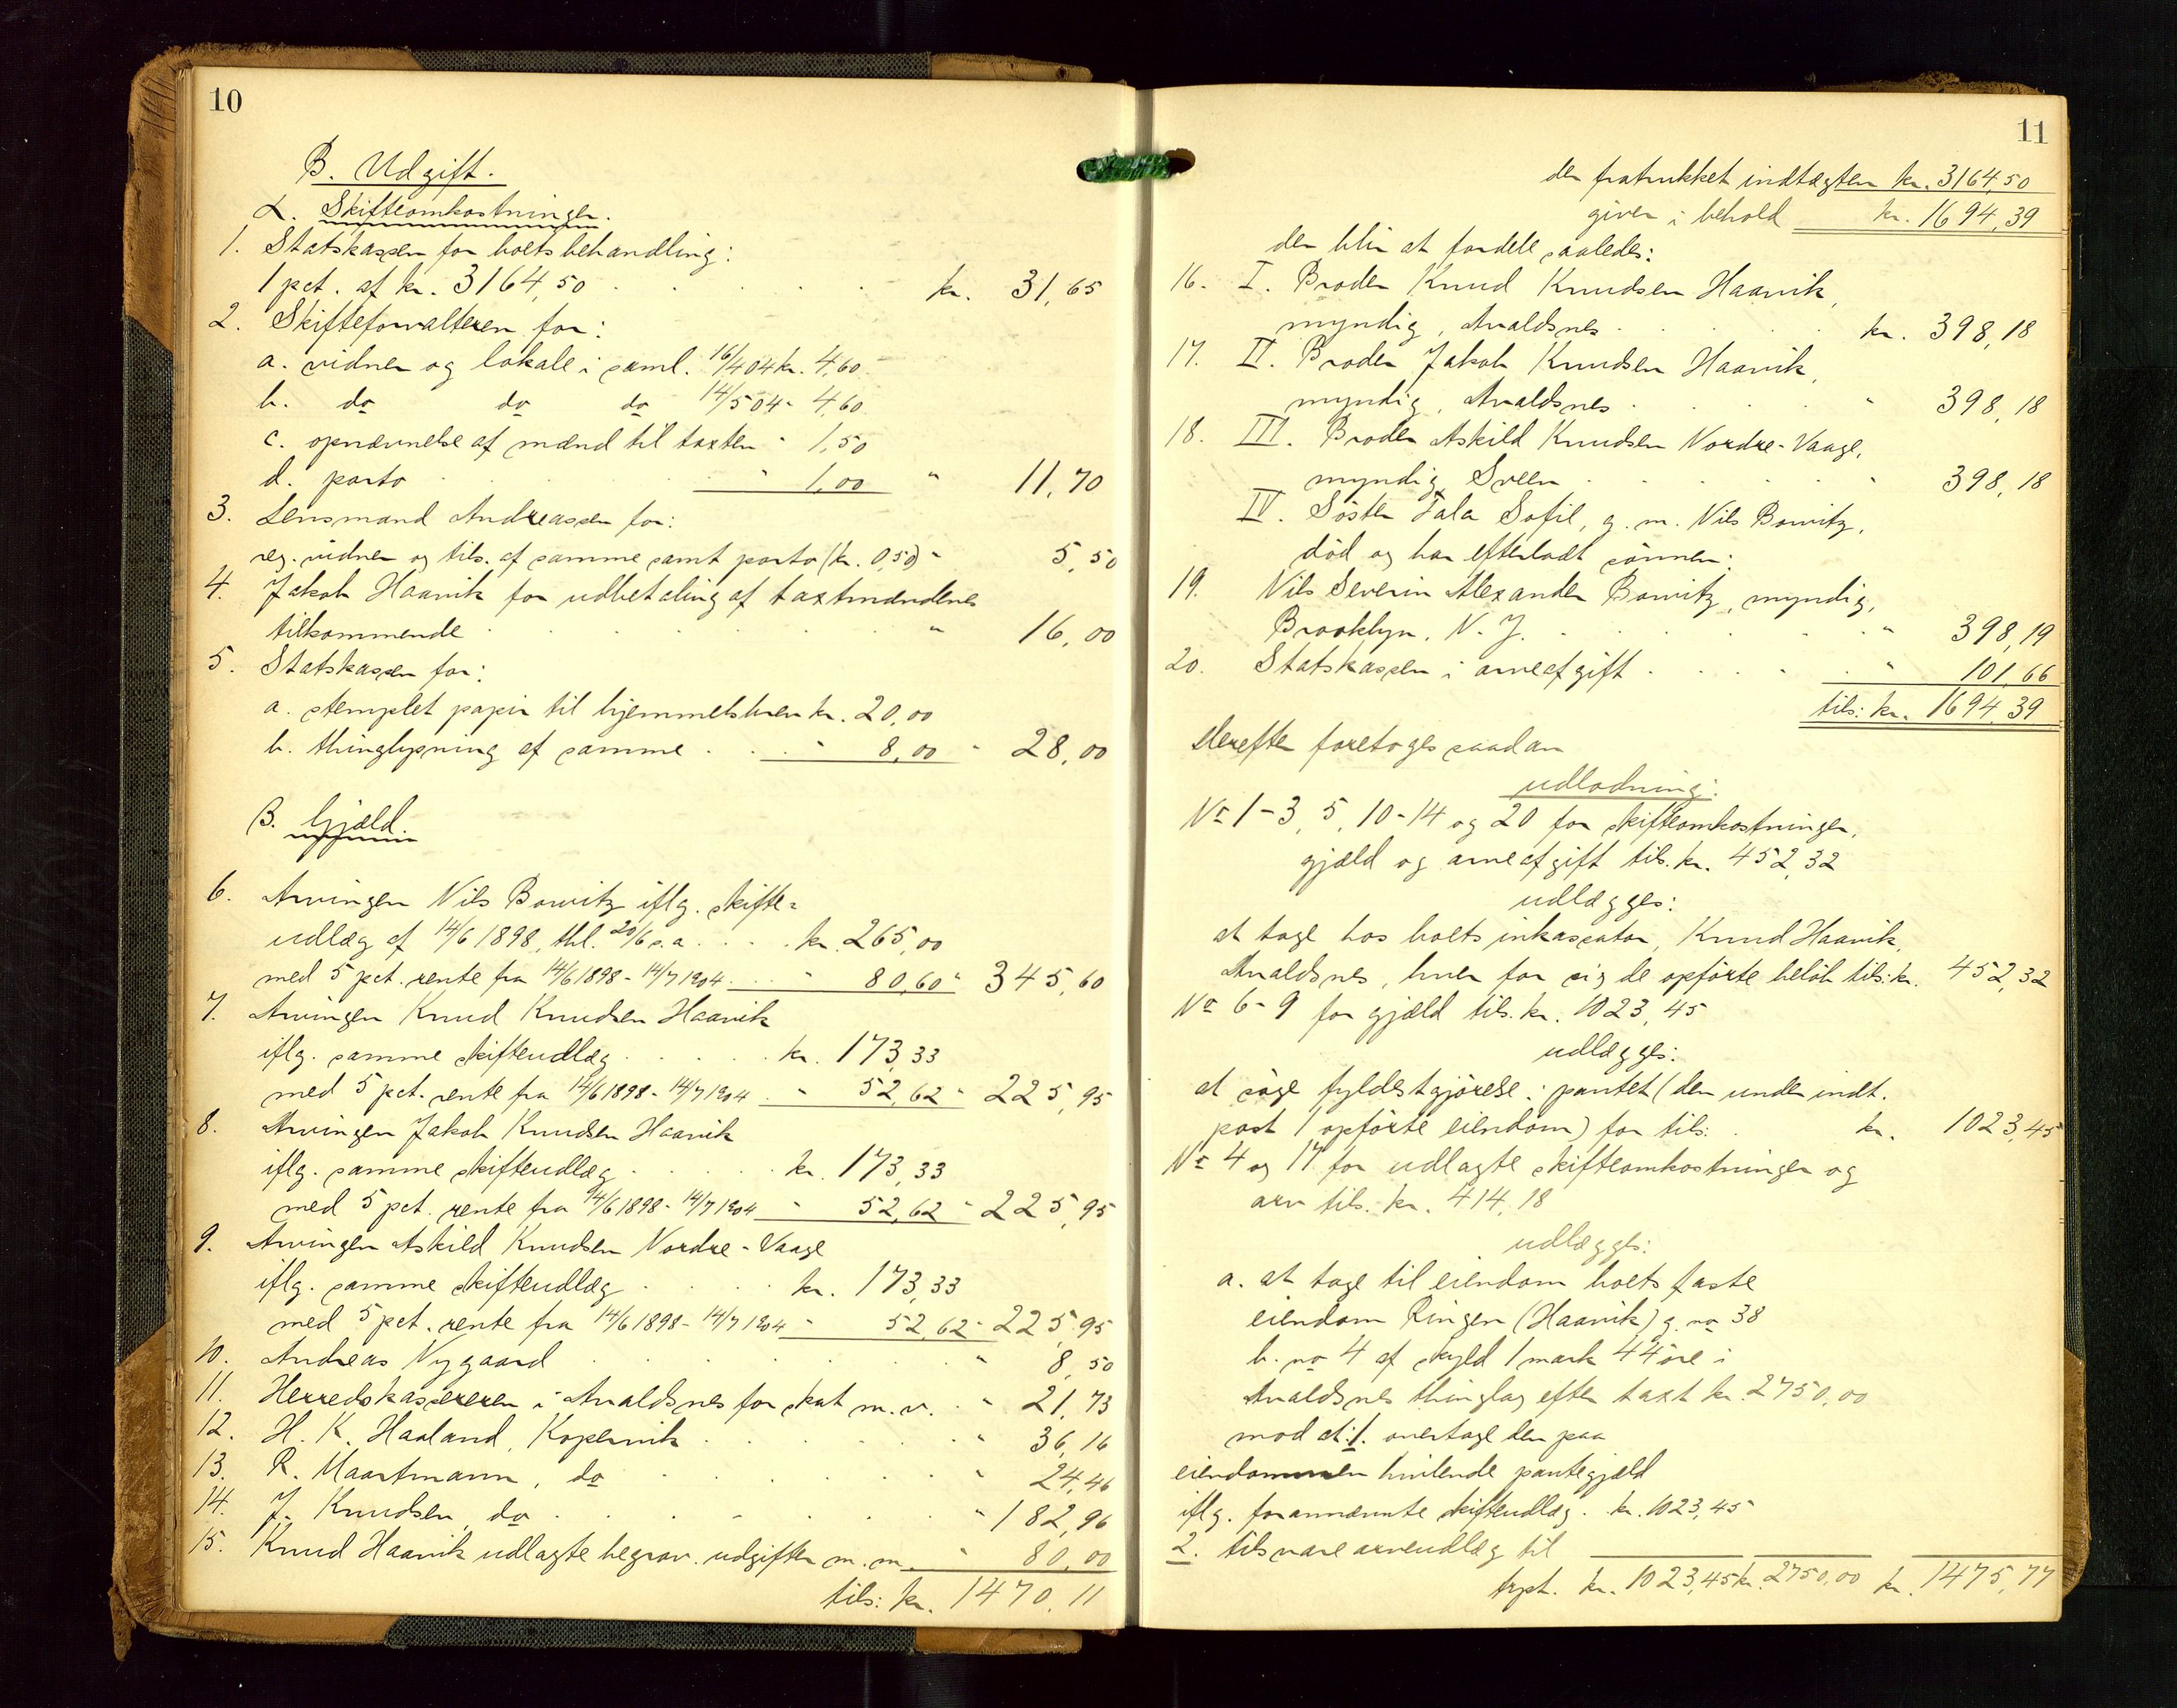 10
B. Udgift.
α. Skifteomkostninger.
1. Statskassen for boets behandling:
1 pct. af kr. 3164,50 . . . . kr. 31,65
2. Skifteforvalteren for:
a. vidner og lokale i saml. 16/4 04 kr. 4,60
b. do do do 14/5 04 - 4,60
c. opnævnelse af mænd til taxten " 1,50
d. porto . . . " 1,00 " 11,70
3. Lensmand Andreassen for:
reg. vidner og tils. af samme samt porto (kr. 0,50) " 5,50
4. Jakob Haavik for udbetaling af taxtmændenes
tilkommende . . . . . " 16,00
5. Statskassen for:
a. stemplet papir til hjemmelsbrev kr. 20,00
b. thinglysning af samme . . " 8,00 " 28,00
β. Gjæld.
6. Arvingen Nils Bowitz iflg. skifte-
udlæg af 14/6 1898, thl. 20/6 s.a. . . . kr. 265,00
med 5 pct. rente fra 14/6 1898 - 14/7 1904 . . " 80,60 " 345,60
7. Arvingen Knud Knudsen Haavik
iflg. samme skifteudlæg . . . . kr. 173,33
med 5 pct. rente fra 14/6 1898 - 14/7 1904 . " 52,62 " 225,95
8. Arvingen Jakob Knudsen Haavik
iflg. samme skifteudlæg . . . . kr. 173,33
med 5 pct. rente fra 14/6 1898 - 14/7 1904 " 52,62 " 225,95
9. Arvingen Askild Knudsen Nordre-Vaage
iflg. samme skifteudlæg . . . kr. 173,33
med 5 pct. rente fra 14/6 1898 - 14/7 1904 " 52,62 " 225,95
10. Andreas Nygaard . . . . . " 8,50
11. Herredskassereren i Avaldsnes for skat m.v. . " 21,73
12. H. K. Haaland, Kopervik . . . . " 36,16
13. R. Maartmann, do . . . . " 24,46
14. J. Knudsen, do . . . . . " 182,96
15. Knud Haavik udlagte begrav. udgifter m.m. " 80,00
tils: kr. 1470,11
11
der fratrukket indtægten kr. 3164,50
giver i behold kr. 1694,39
der blir at fordele saaledes:
16. I. Broder Knud Knudsen Haavik,
myndig, Avaldsnes . . . . kr. 398,18
17. II. Broder Jakob Knudsen Haavik,
myndig, Avaldsnes . . . . " 398,18
18. III. Broder Askild Knudsen Nordre-Vaage,
myndig, Sveen . . . . " 398,18
IV. Søster Tala Sofie, g. m. Nils Bowitz,
død og har efterladt sønnen:
19. Nils Severin Alexander Bowitz, myndig,
Brooklyn, N. J. . . . . " 398,19
20. Statskassen i arveafgift . . . . " 101,66
tils: kr. 1694,39
Derefter foretoges saadan
udlodning:
No 1-3, 5, 10-14 og 20 for skifteomkostninger,
gjæld og arveafgift tils. kr. 452,32
udlægges:
at tage hos boets inkassator, Knud Haavik,
Avaldsnes, hver for sig de opførte beløb tils: kr. 452,32
No 6-9 for gjæld tils. kr. 1023,45
udlægges:
at søge fyldestgjørelse i pantet (den under indt.
post 1 opførte eiendom) for tils: . kr. 1023,45
No 4 og 17 for udlagte skifteomkostninger og
arv tils. kr. 414,18
udlægges:
a. at tage til eiendom boets faste
eiendom Ringen (Haavik) g. no 38
b. no 4 af skyld 1 mark 44 øre i
Avaldsnes thinglag efter taxt kr. 2750,00
mod at: 1. overtage den paa
eiendommen hvilende pantegjæld
iflg. forannævnte skifteudlæg . kr. 1023,45
2. tilsvare arveudlæg til
trpt. kr. 1023,45 kr. 2750,00 kr. 1475,77